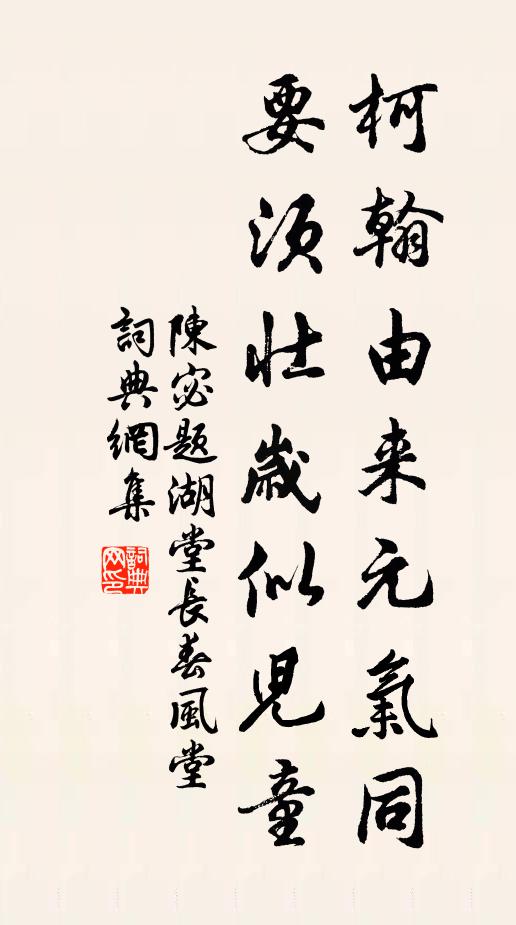 柯翰由来元氣同
要須壯歲似兒童
陳宓題湖堂長春風堂
詞典網集
詞典网印